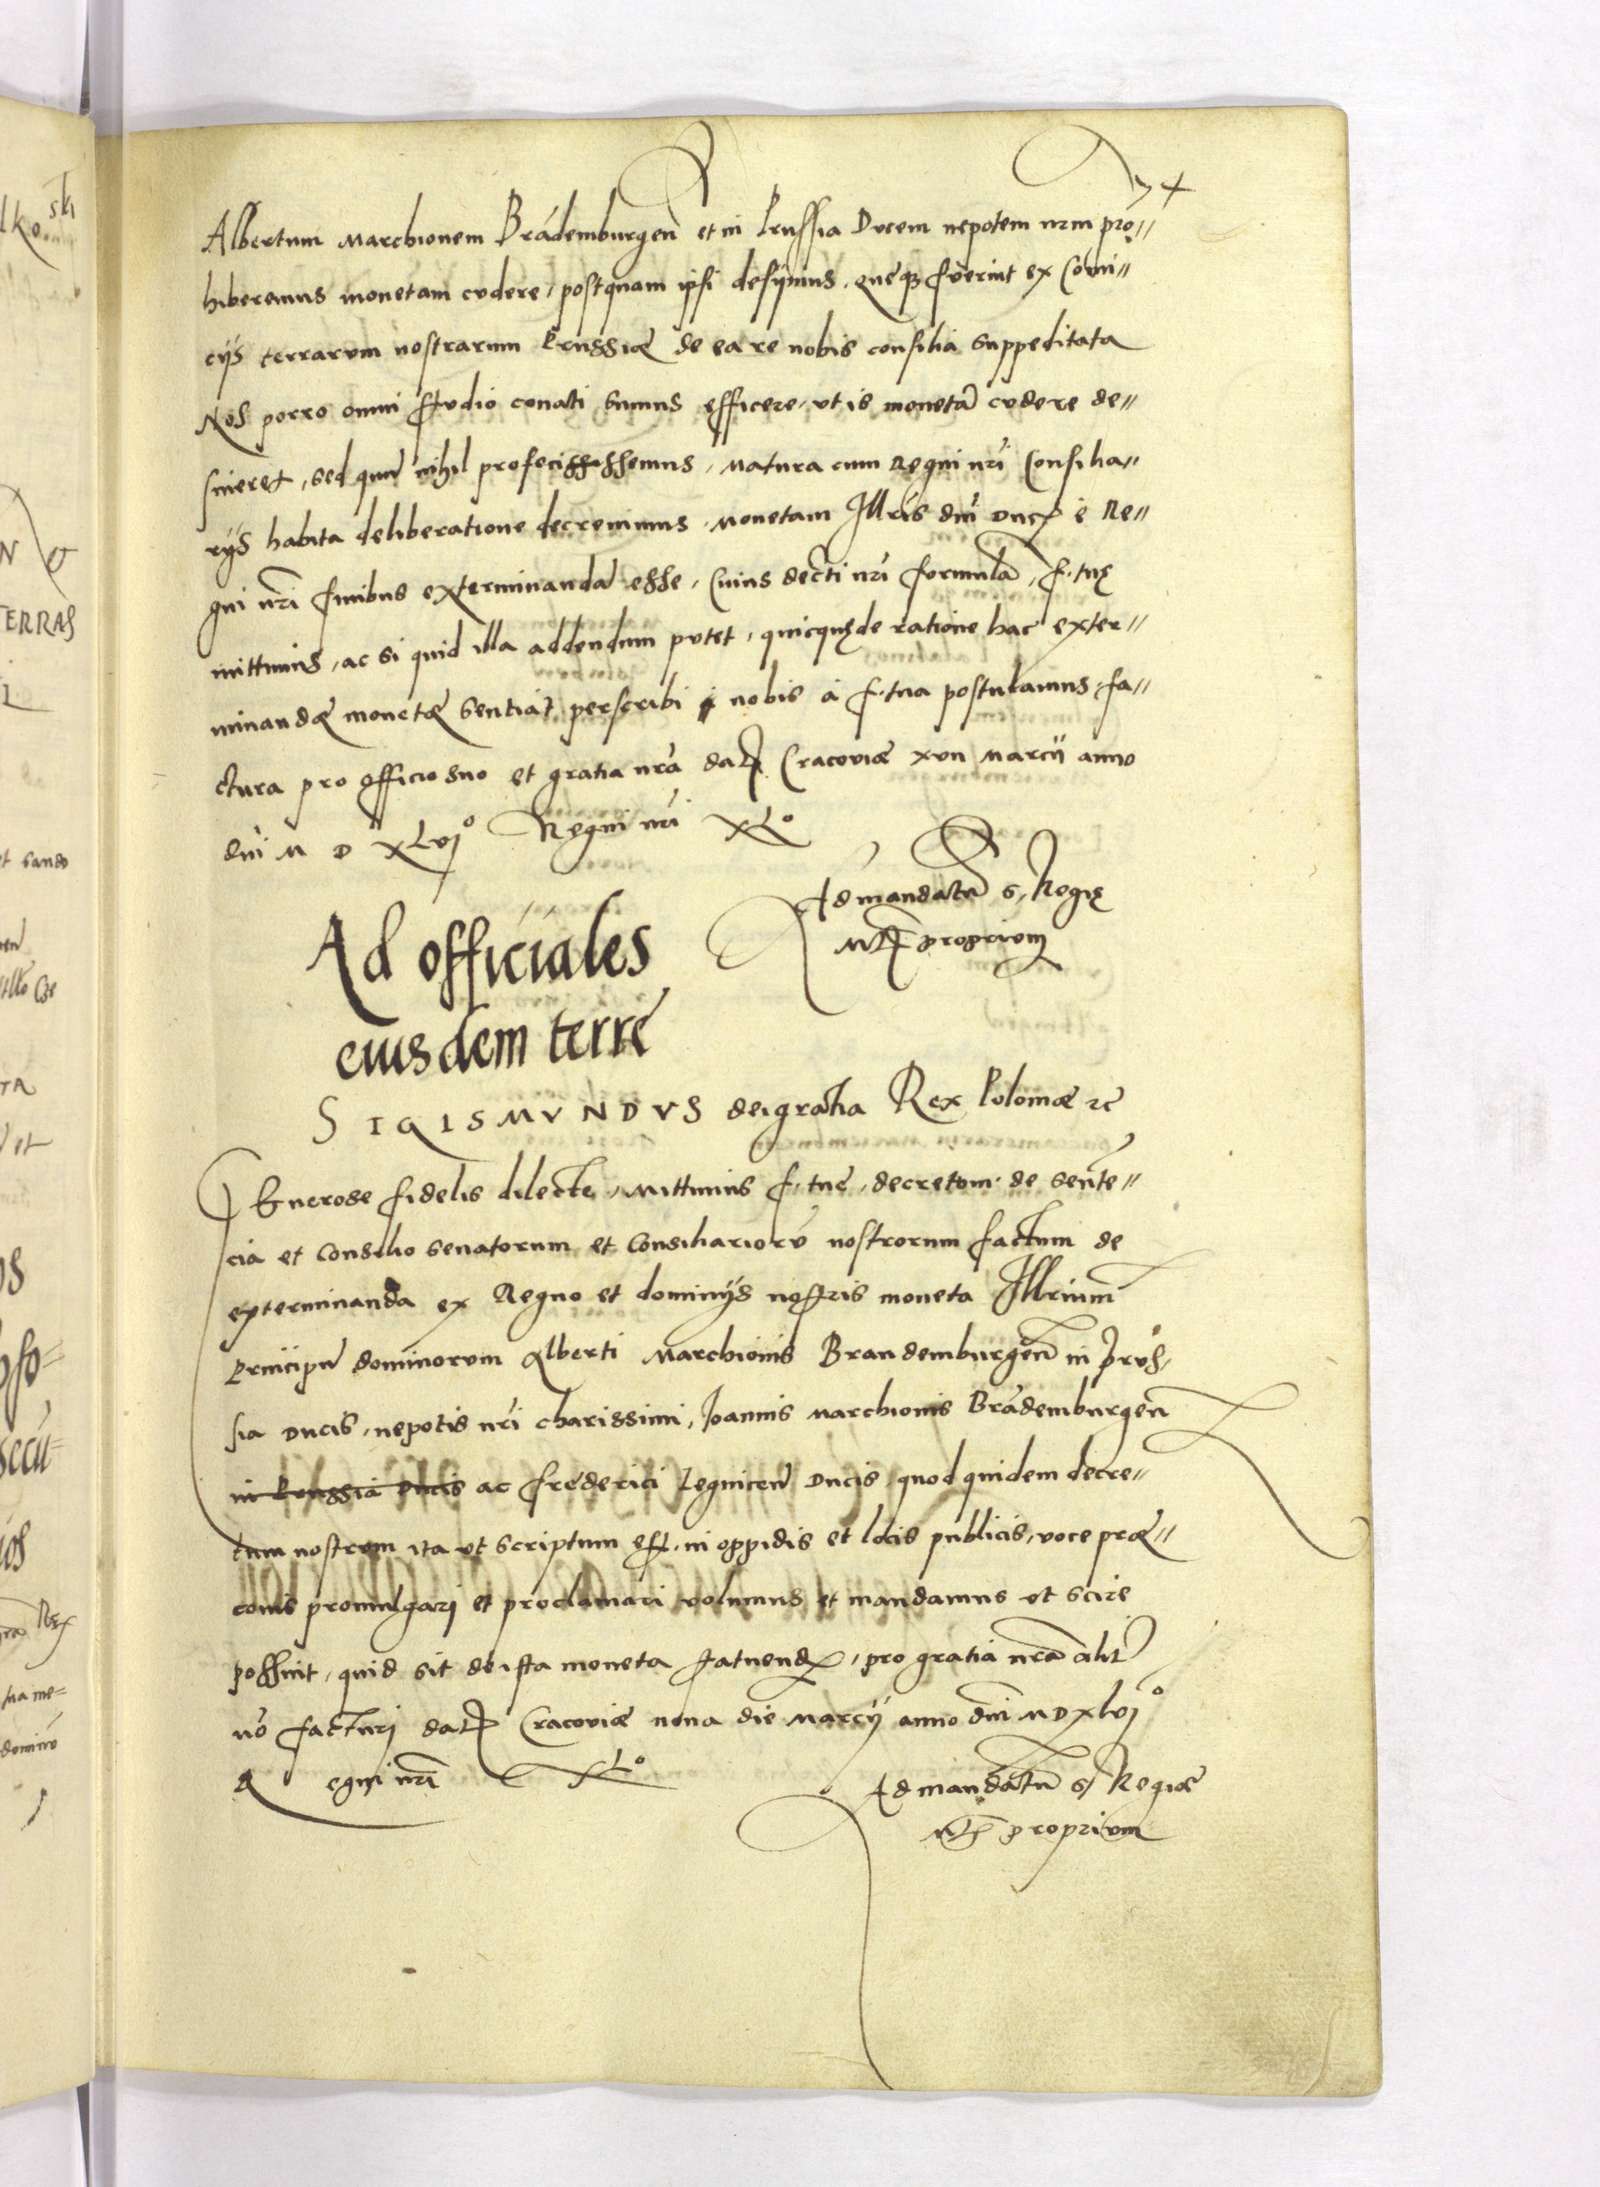 74
Albertum Marchionem Brãdemburgeñ et in Prussia Ducem nepotem nrm pro=
hiberemus monetam cudere, postquam ipsi desijmus, queq; fuerint ex Comi=
cijs terrarum nostrarum Prussiæ de ea re nobis consilia suppeditata
Nos porro omni studio conati sumus efficere, ut is monetã cudere de=
sineret, sed qum nihil profecissemus, matura cum Regni nri Consilia=
rijs habita deliberatione decrevimus, monetam Illris dni Ducis e Re=
gni nri finibus exterminandã esse, Cuius decti nri formulã, f. tuę
mittimus, ac si quid illa addendum putet, quicquę de ratione hac exter=
minandæ monetæ sentiat perscribi nobis a f. tua postulamus, fa=
ctura pro officio suo et gratia nrã dat Cracoviæ xvii Marcij anno
dni M D XLvjº Regni nri XLº
Ad mandatũ S. Regię
Mtis proprium
Ad officiales
eiusdem terre
SIGISMVNDVS dei gratia Rex Poloniæ rc
Generose fidelis dilecte, Mittimus f. tue, decretum de senten=
cia et consilio senatorum et consiliariorũ nostrorum factum de
exterminanda ex Regno et dominijs nostris moneta Illrium
Principũ dominorum Alberti Marchionis Brandemburgeñ in Prus=
sia Ducis, nepotis nri charissimi, Joannis Marchionis Brãdemburgeñ
in Prussia Ducis ac Frederici Legniceñ Ducis, quod quidem decre=
tum nostrum ita ut scriptum est, in oppidis et locis publicis, voce præ=
conis promulgari et proclamari volumus et mandamus ut scire
possint, quid sit de ista moneta statuendum, pro gratia nrã alit
nõ facturi dat Cracoviæ nona die Marcij anno dni MDxlvjº
Regni nri XLº
Ad mandatũ S. Regiæ
Mtis proprium